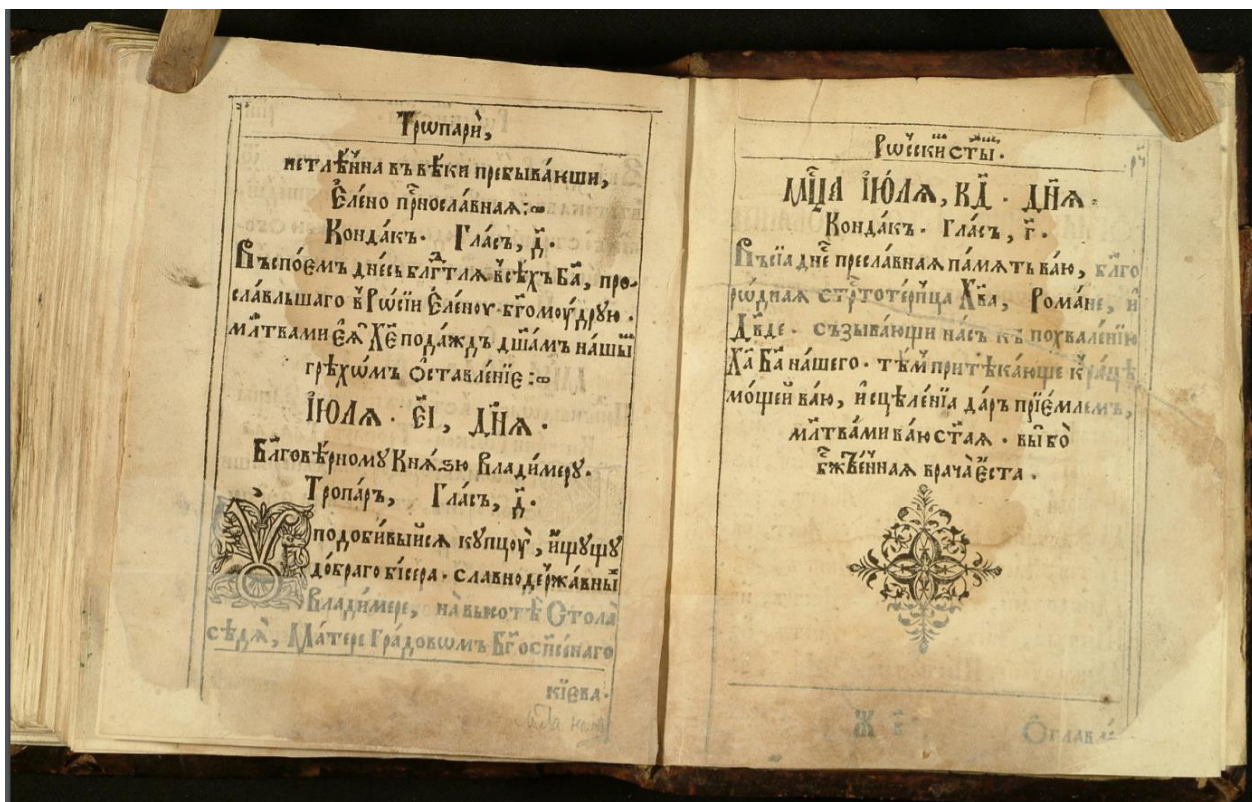 Трѡпарѝ,
нетлѣ́нна въ вѣ́ки пребыва́юши,
Єле́но пр҃носла́внаѧ:
Конда́къ. Гла́съ, д҃.
Въспое́мъ дне́сь бл҃гⷣтлѧ всѣ́хъ Ба҃, про-
сла́вльшаго в Рѡ́сїи Єле́ноу бг҃омоу́друю.
мл҃твами еѧ̀ Хе҃ пода́ждь дш҃а́мъ на́шы̏
грѣхѡ́мъ ѻ҆ставле́нїе:
І҆Ю́ЛѦ. Є҃І, ДН҃Ѧ.
Бл҃говѣ́рному Кнѧ́зю Влади́меру.
Тропа́ръ, Гла́съ, д҃.
Уподо́бивыйсѧ купцоу̀, и҆́щущу
до́браго би́сера. сла́внодержа́вны̏
Влади́мере, на высотѣ̀ Стола̀
сѣдѧ̀, Ма́тере Гра́довѡмъ Бг҃оспⷭ҇е́наго
кі́ева.
Рѡ́сскⷯи ст҃ы.
МЦ҃А І҆Ю́ЛѦ, К҃Д. ДН҃Ѧ.
Конда́къ. Гла́съ, г҃.
Въсїа̀ дне҃ пресла́внаѧ па́мѧть ва́ю, бл҃го
рѡ́днаѧ стрⷭ҇тоте́рпца Хв҃а, Рома́не, и҆
Дв҃де. съзыва́ющи на́съ къ похвале́нїю
Ха҃ Ба҃ на́шего. тѣ́м притѣка́юще к ра́цѣ
мо́щей ва́ю, и҆сцѣле́нїа да́ръ прїе́млемъ,
мл҃твами ва́ю ст҃аѧ. вы̀ бо̀
бж҃твеннаѧ врача̀ є҆ста.
Ж в҃
Ѻ҆главле́